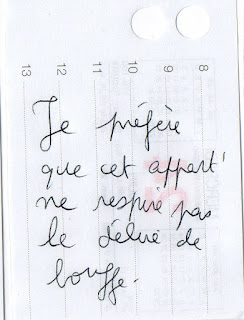 8
9
10
11
12
13
Je préfère
que cet appart'
ne respire pas
le délire de
bouffe.